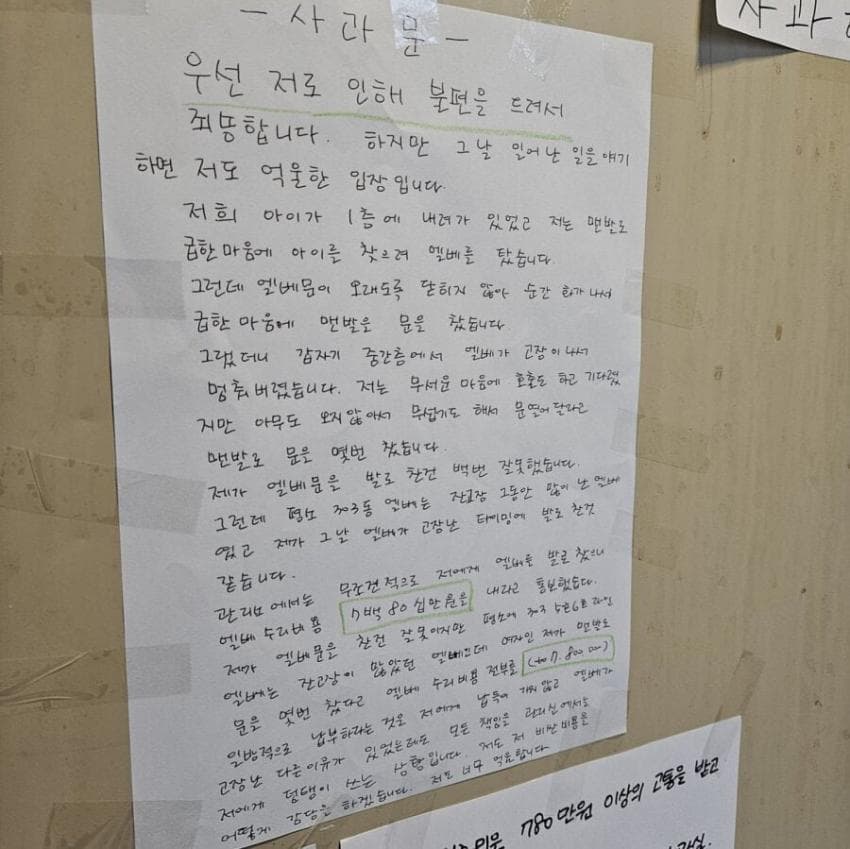 - 사 과 문 -
우선 저로 인해 불편을 드려서
죄송합니다. 하지만 그날 일어난 일을 얘기
하면 저도 억울한 입장입니다.
저희 아이가 1층에 내려가 있었고 저는 맨발로
급한마음에 아이를 찾으려 엘베를 탔습니다.
그런데 엘베문이 오래도록 닫히지 않아 순간 화가나서
급한 마음에 맨발은 문을 찼습니다
그랬더니 갑자기 중간층에서 엘베가 고장이나서
멈춰버렸습니다. 저는 무서운 마음에 호출도 하고 기다렸
지만 아무도 오지않아서 무섭기도 해서 문열어달라고
맨발로 문을 몇번 찼습니다.
제가 엘베문을 발로 찬건 백번 잘못했습니다.
그런데 평소 303동 엘베는 잔고장 그동안 많이 난 엘베
였고 제가 그날 엘베가 고장난 타이밍에 발로 찬것
같습니다.
관리소에서는 무조건적으로 저에게 엘베를 발로 찼으니
엘베 수리비용 7백80십만원을 내라고 통보했습니다.
제가 엘베문을 찬건 잘못이지만 평소에 303 5호6호 라인
엘베는 잔고장이 많았던 엘베인데 여자인 제가 맨발로
문을 몇번 찼다고 엘베 수리비용 전부를 (₩7.800.000)
일방적으로 납부하라는 것을 저에게 납득이 가지않고 엘베가
고장난 다른이유가 있었는데도 모든 책임을 관리실에서는
저에게 덤탱이 쓰는 상황입니다. 저도 저 비싼비용을
어떻게 감당을 하겠습니다. 저도 너무 억울합니다
사과
780만원 이상의 고통을 받고